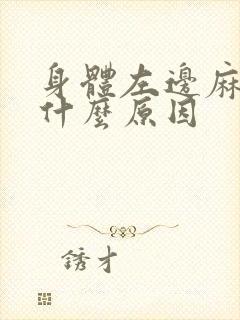 身體左邊麻
什麼原因
銹才